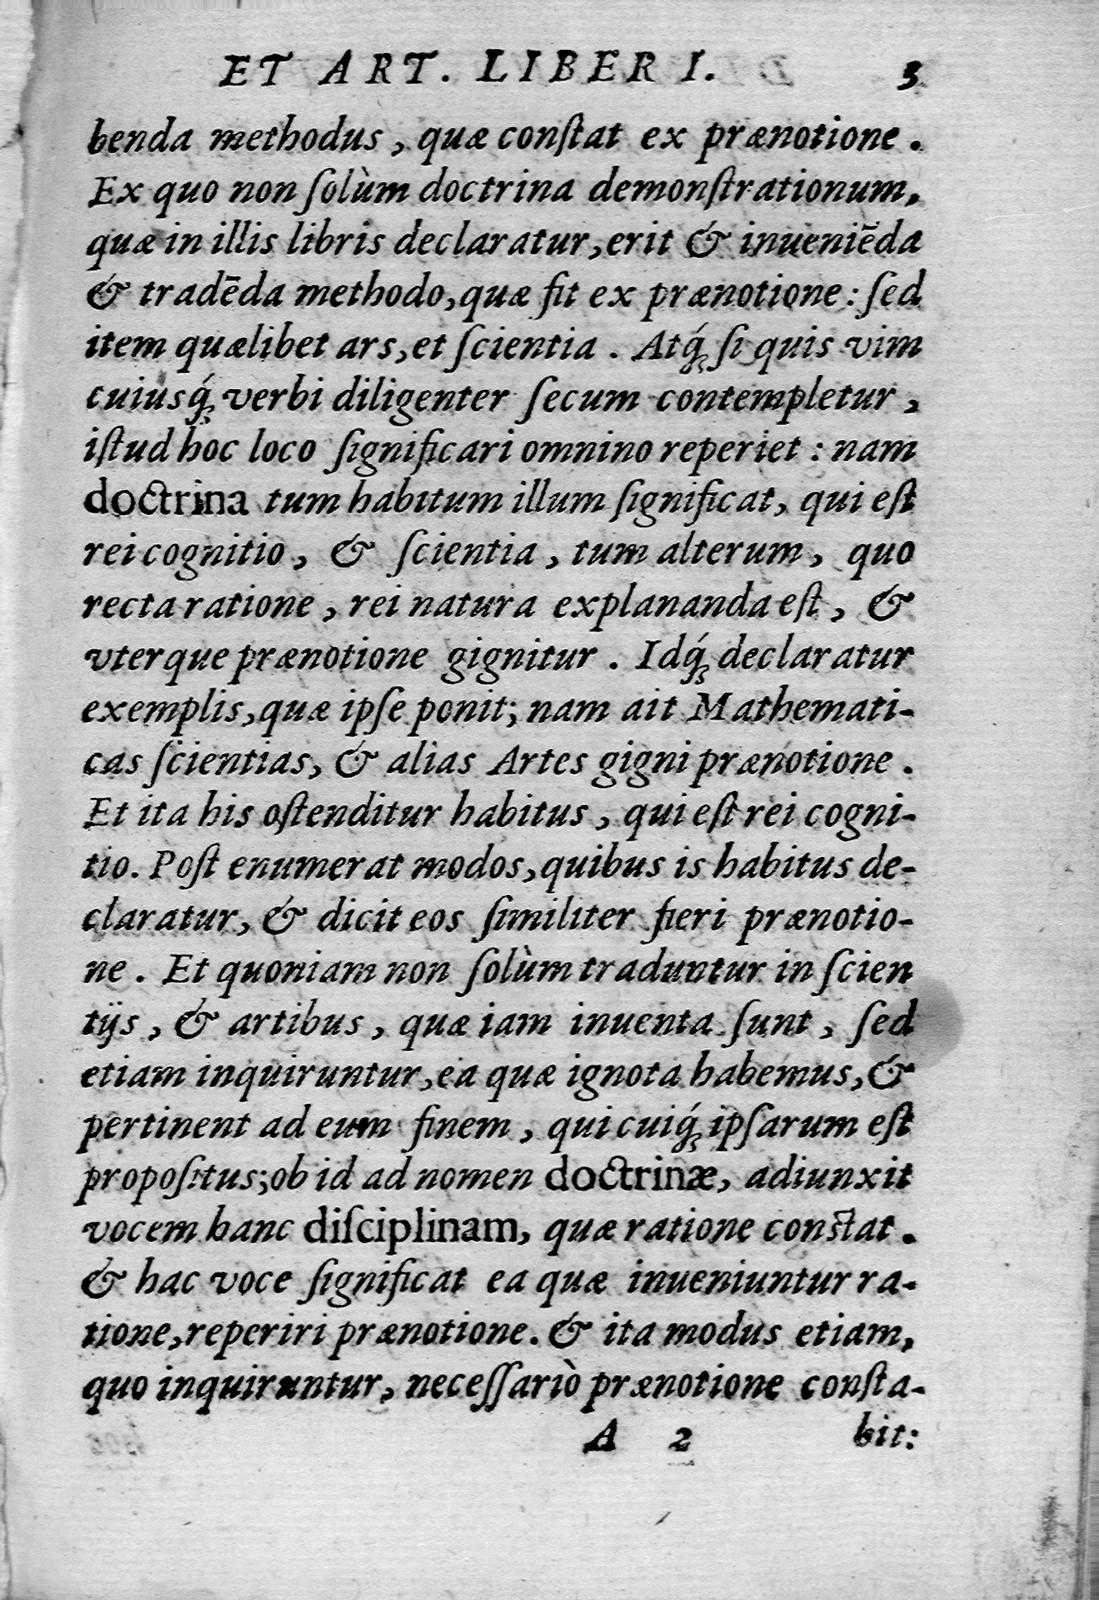 ET ART. LIBER I. 3
benda methodus, quæ conſtat ex prænotione.
Ex quo non ſolùm doctrina demonſtrationum,
quæ in illis libris declaratur, erit & inueniēda
& tradēda methodo, quæ fit ex prænotione: ſed
item quælibet ars, et ſcientia. Atq́ꝫ ſi quis vim
cuiusq́ꝫ verbi diligenter ſecum contempletur,
iſtud hoc loco ſignificari omnino reperiet: nam
doctrina tum habitum illum ſignificat, qui eſt
rei cognitio, & ſcientia, tum alterum, quo
recta ratione, rei natura explananda eſt, &
vterque prænotione gignitur. Idq́ꝫ declaratur
exemplis, quæ ipſe ponit; nam ait Mathemati-
cas ſcientias, & alias Artes gigni prænotione.
Et ita his oſtenditur habitus, qui eſt rei cogni-
tio. Poſt enumerat modos, quibus is habitus de-
claratur, & dicit eos ſimiliter fieri prænotio-
ne. Et quoniam non ſolùm traduntur in ſcien
tijs, & artibus, quæ iam inuenta ſunt, ſed
etiam inquiruntur, ea quæ ignota habemus, &
pertinent ad eum finem, qui cuiq́ꝫ ipſarum eſt
propoſitus; ob id ad nomen doctrinæ, adiunxit
vocem hanc diſciplinam, quæ ratione conſtat.
& hac voce ſignificat ea quæ inueniuntur ra-
tione, reperiri prænotione. & ita modus etiam,
quo inquiruntur, neceſſariò prænotione conſta-
A 2 bit: